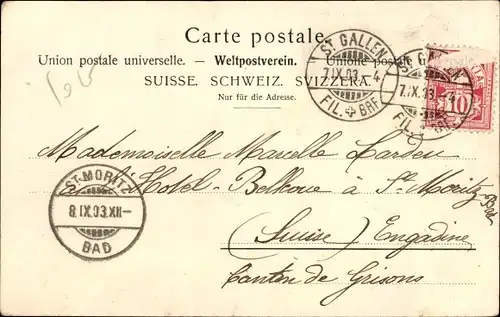 Carte postale.
Union postale universelle. — Weltpostverein. — Unione postale
SUISSE. SCHWEIZ. SVIZZERA.
Nur für die Adresse.
ST GALLEN
7.IX.03.-4
FIL. BRF
7.IX.03.-4
FIL. BRF
10
Mademoiselle Marcelle
Hotel-Bellevue à St. Moritz
Bad
(Suisse) Engadine
Canton de Grisons
ST-MORITZ
8.IX.03.XII-
BAD